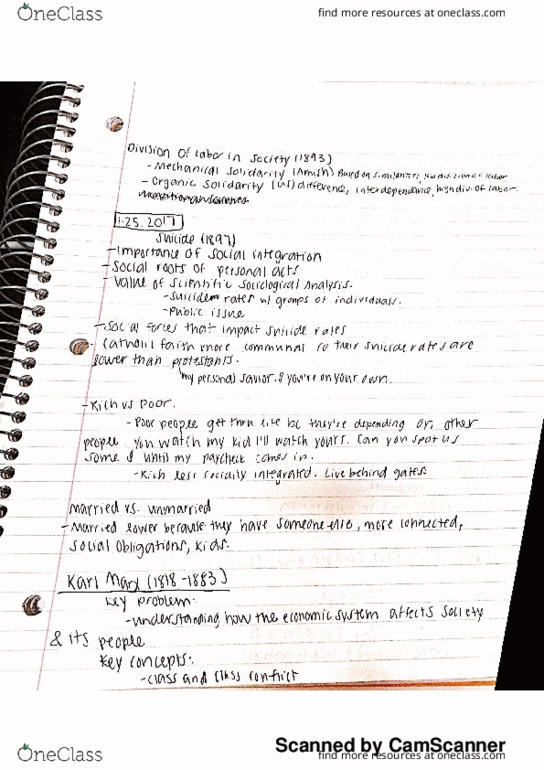 OneClass find more resources at oneclass.com
Division of Labor in Society (1893)
- Mechanical Solidarity (Amish) Based on similarities, low division of labor
- Organic Solidarity (US) difference, interdependence, high div. of labor.
1.25.2017
Suicide (1897)
- Importance of social integration
- Social roots of personal acts
- Value of scientific sociological analysis.
- Suicide rates w/ groups of individuals.
- Public issue
- Social forces that impact suicide rates
- Catholic faith more communal so their suicide rates are
lower than protestants.
"my personal savior. if you're on your own.
- Rich vs Poor.
- Poor people get thru life bc they're depending on other
people. you watch my kid I'll watch yours. Can you spot us
some $ until my paycheck comes in.
- Rich less socially integrated. Live behind gates.
Married vs. unmarried
- Married lower because they have someone else, more connected,
social obligations, kids.
Karl Marx (1818-1883)
Key problem:
- understanding how the economic system affects society
& its people
Key concepts:
- class and class conflict
Scanned by CamScanner
OneClass find more resources at oneclass.com